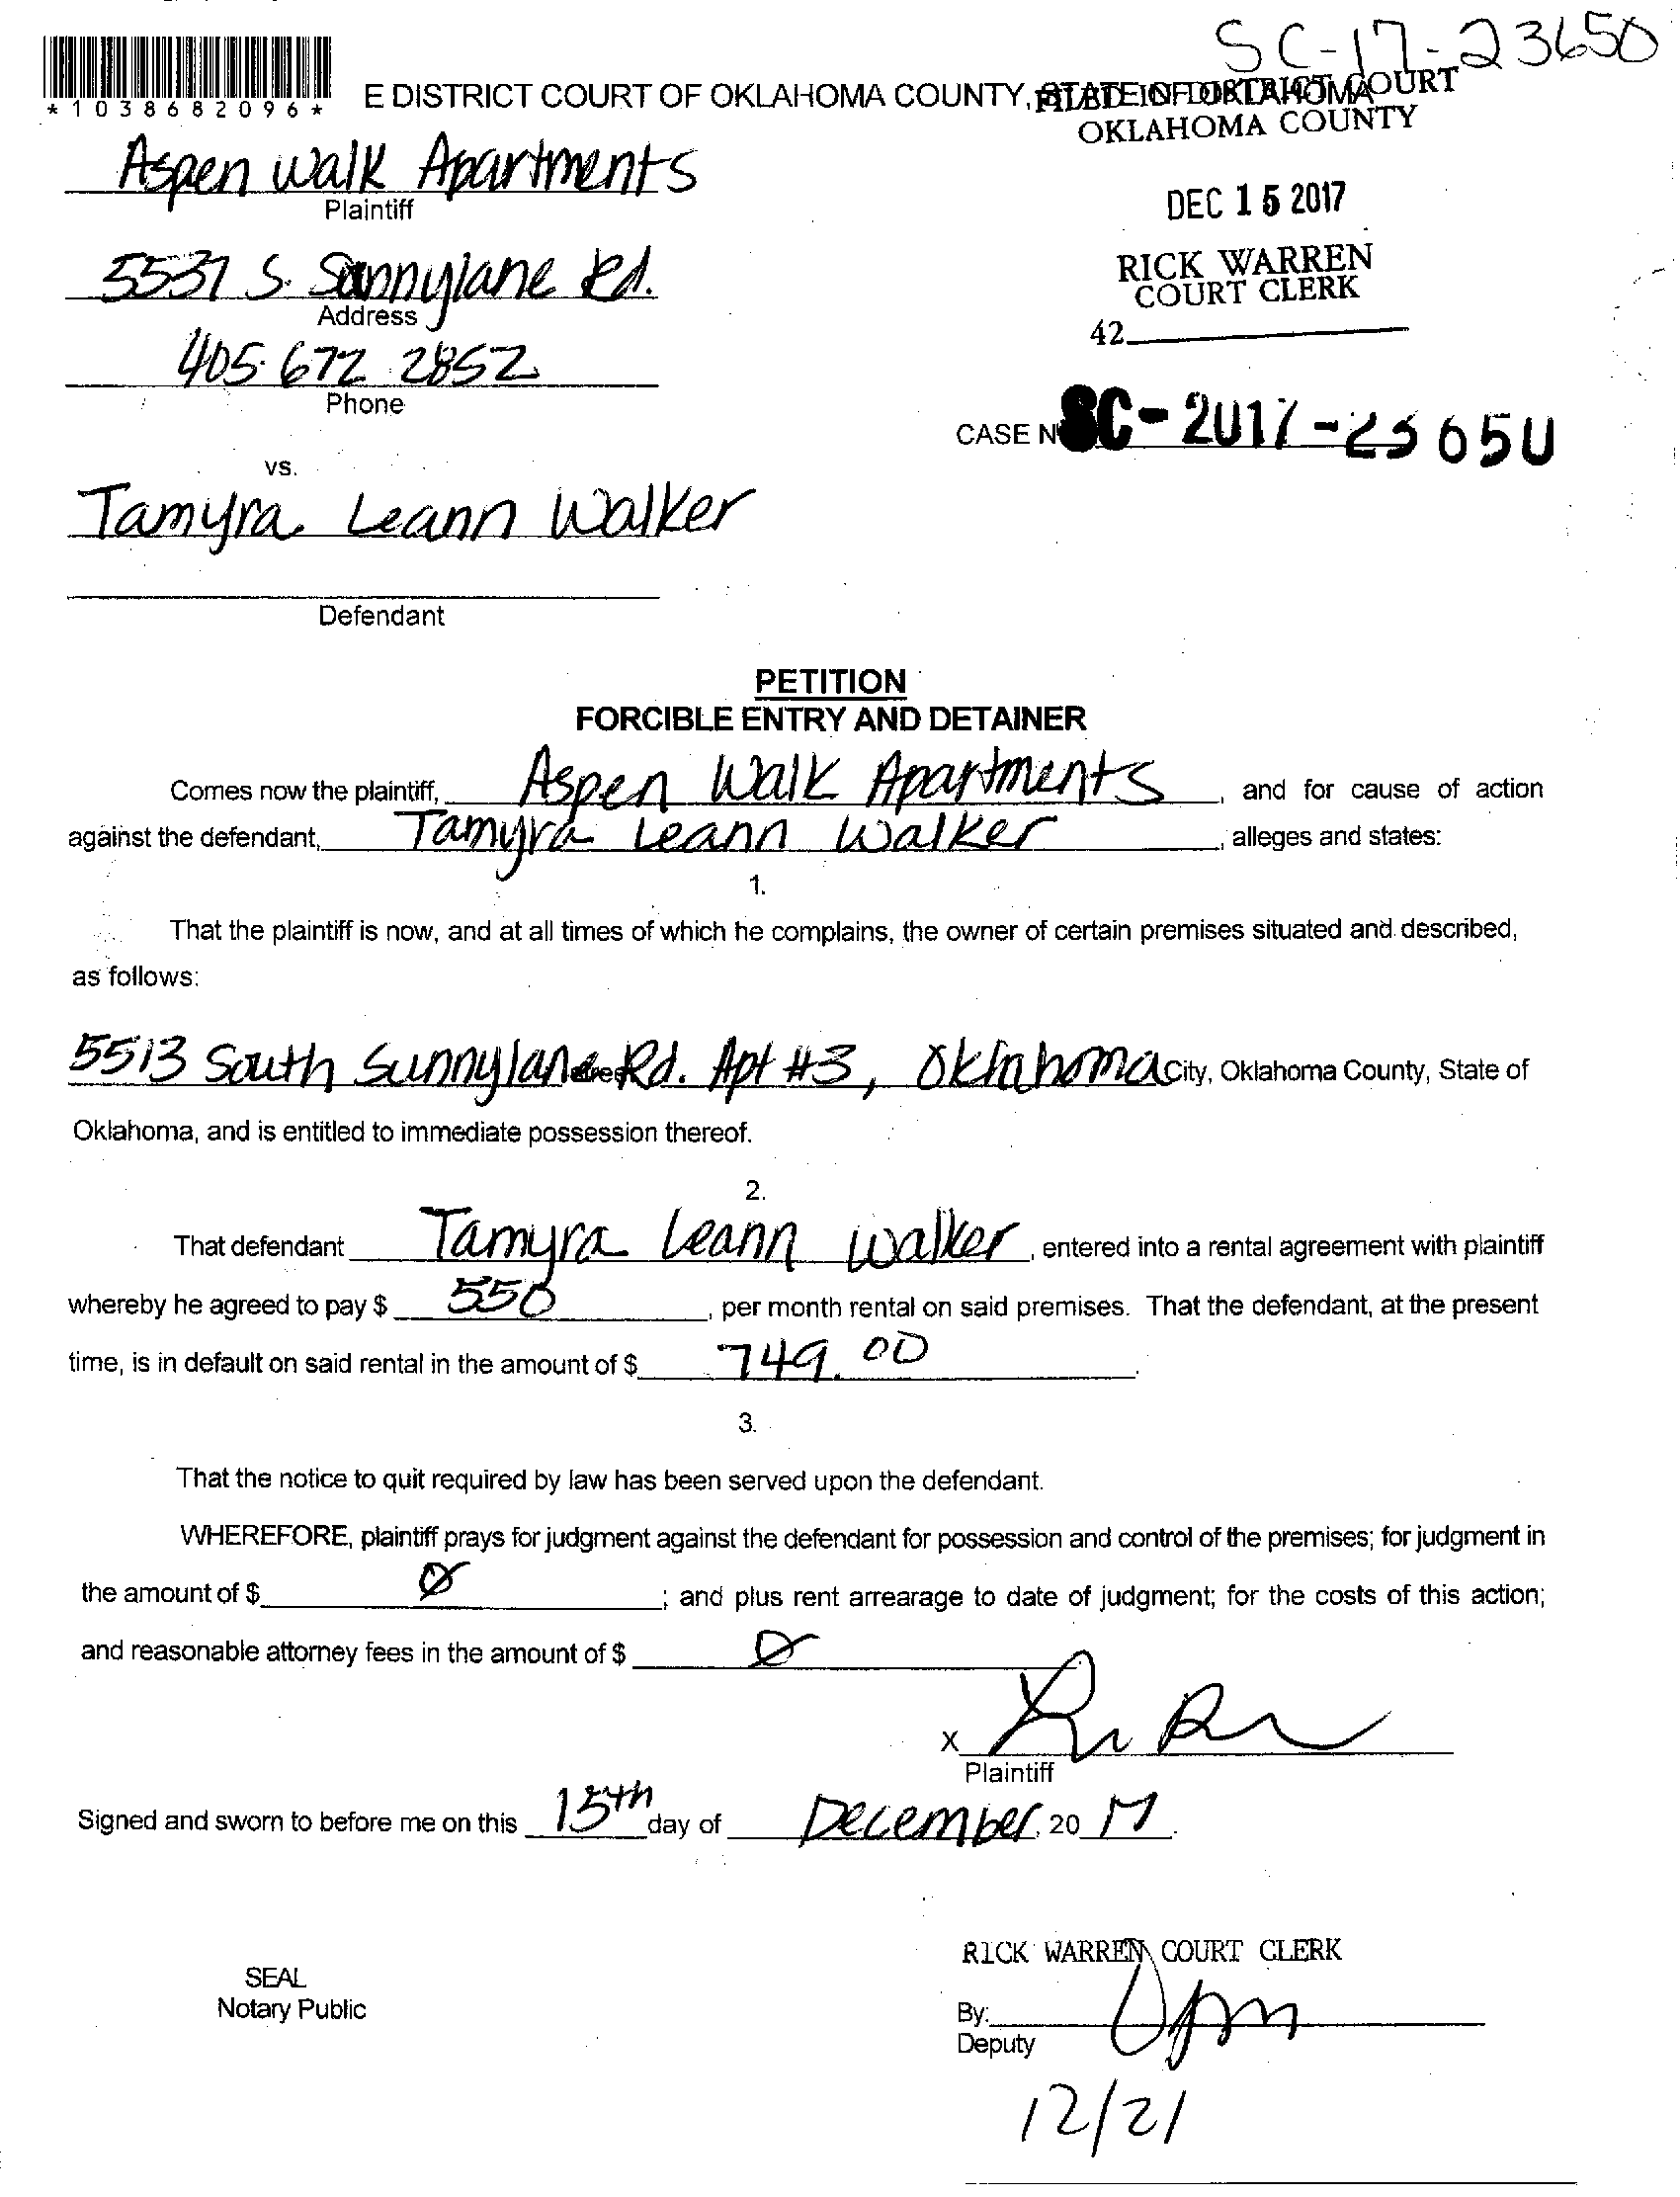 SC-17-23650
*1038682096*
E DISTRICT COURT OF OKLAHOMA COUNTY, STATE OF OKLAHOMA
FILED IN DISTRICT COURT
OKLAHOMA COUNTY
Aspen Walk Apartments
Plaintiff
DEC 15 2017
5537 S. Sunnylane Rd.
Address
RICK WARREN
COURT CLERK
42
405 672 2852
Phone
CASE N SC-2017-23650
vs.
Tamyra Leann Walker
Defendant
PETITION
FORCIBLE ENTRY AND DETAINER
Comes now the plaintiff, Aspen Walk Apartments, and for cause of action
against the defendant, Tamyra Leann Walker, alleges and states:
1.
That the plaintiff is now, and at all times of which he complains, the owner of certain premises situated and described,
as follows:
5513 South Sunnylane Rd. Apt #3, Oklahoma City, Oklahoma County, State of
Oklahoma, and is entitled to immediate possession thereof.
2.
That defendant Tamyra Leann Walker, entered into a rental agreement with plaintiff
whereby he agreed to pay $ 550, per month rental on said premises. That the defendant, at the present
time, is in default on said rental in the amount of $ 749.00.
3.
That the notice to quit required by law has been served upon the defendant.
WHEREFORE, plaintiff prays for judgment against the defendant for possession and control of the premises; for judgment in
the amount of $ Ø; and plus rent arrearage to date of judgment; for the costs of this action;
and reasonable attorney fees in the amount of $ Ø
X
Plaintiff
Signed and sworn to before me on this 15th day of December, 20 17.
RICK WARREN COURT CLERK
SEAL
Notary Public
By:
Deputy
12/21